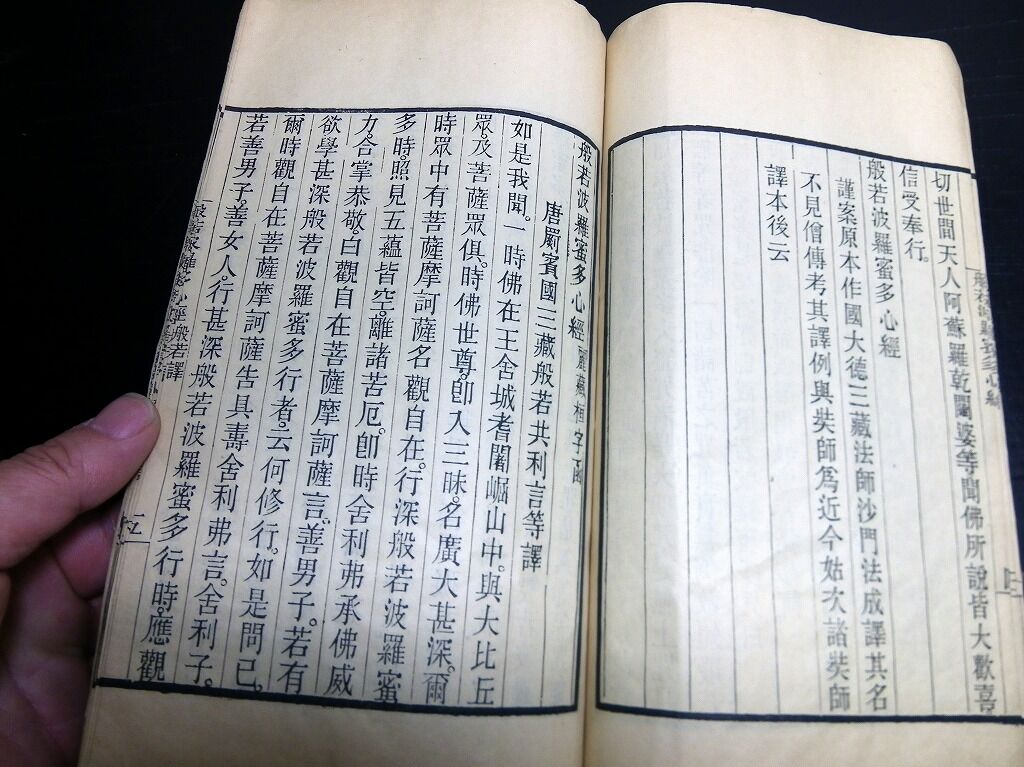 切世間天人阿蘇羅乾闥婆等聞佛所說皆大歡喜
信受奉行。
般若波羅蜜多心經
謹案原本作國大德三藏法師沙門法成譯其名
不見僧傳考其譯例與奘師爲近今姑次諸奘師
譯本後云
般若波羅蜜多心經 麗藏桓字函
唐罽賓國三藏般若共利言等譯
如是我聞。一時佛在王舍城耆闍崛山中。與大比丘
眾。及菩薩眾俱。時佛世尊。卽入三昧。名廣大甚深。爾
時眾中有菩薩摩訶薩名觀自在。行深般若波羅蜜
多時。照見五蘊皆空。離諸苦厄。卽時舍利弗承佛威
力。合掌恭敬。白觀自在菩薩摩訶薩言。善男子。若有
欲學甚深般若波羅蜜多行者。云何修行。如是問已。
爾時觀自在菩薩摩訶薩告具壽舍利弗言。舍利子。
若善男子。善女人。行甚深般若波羅蜜多行時。應觀
般若譯